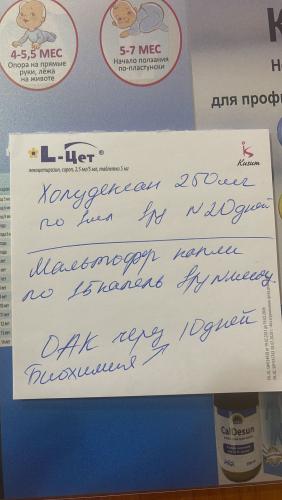 4-5,5 МЕС
Опора на прямые
руки, лёжа
на животе
5-7 МЕС
Начало ползания
по-пластунски
К
Не
для проф
L-Цет®
левоцетиризин, сироп, 2,5 мг/5 мл, таблетки 5 мг
Kusum
Холудексан 250мг
по 1мл 1р N20дней
Мальтофер капли
по 15капель 1р
ОАК через 10дней
Биохимия
CalDesun